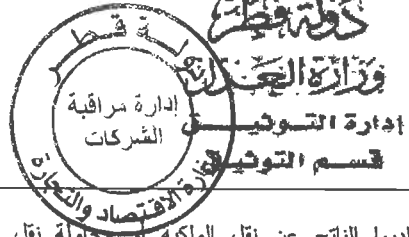 دولة قطر
وزارة العدل
إدارة التوثيق
قسم التوثيق
دولة قطر
إدارة مراقبة
الشركات
وزارة الاقتصاد والتجارة
الناتج عن نقل الملكية
نقل